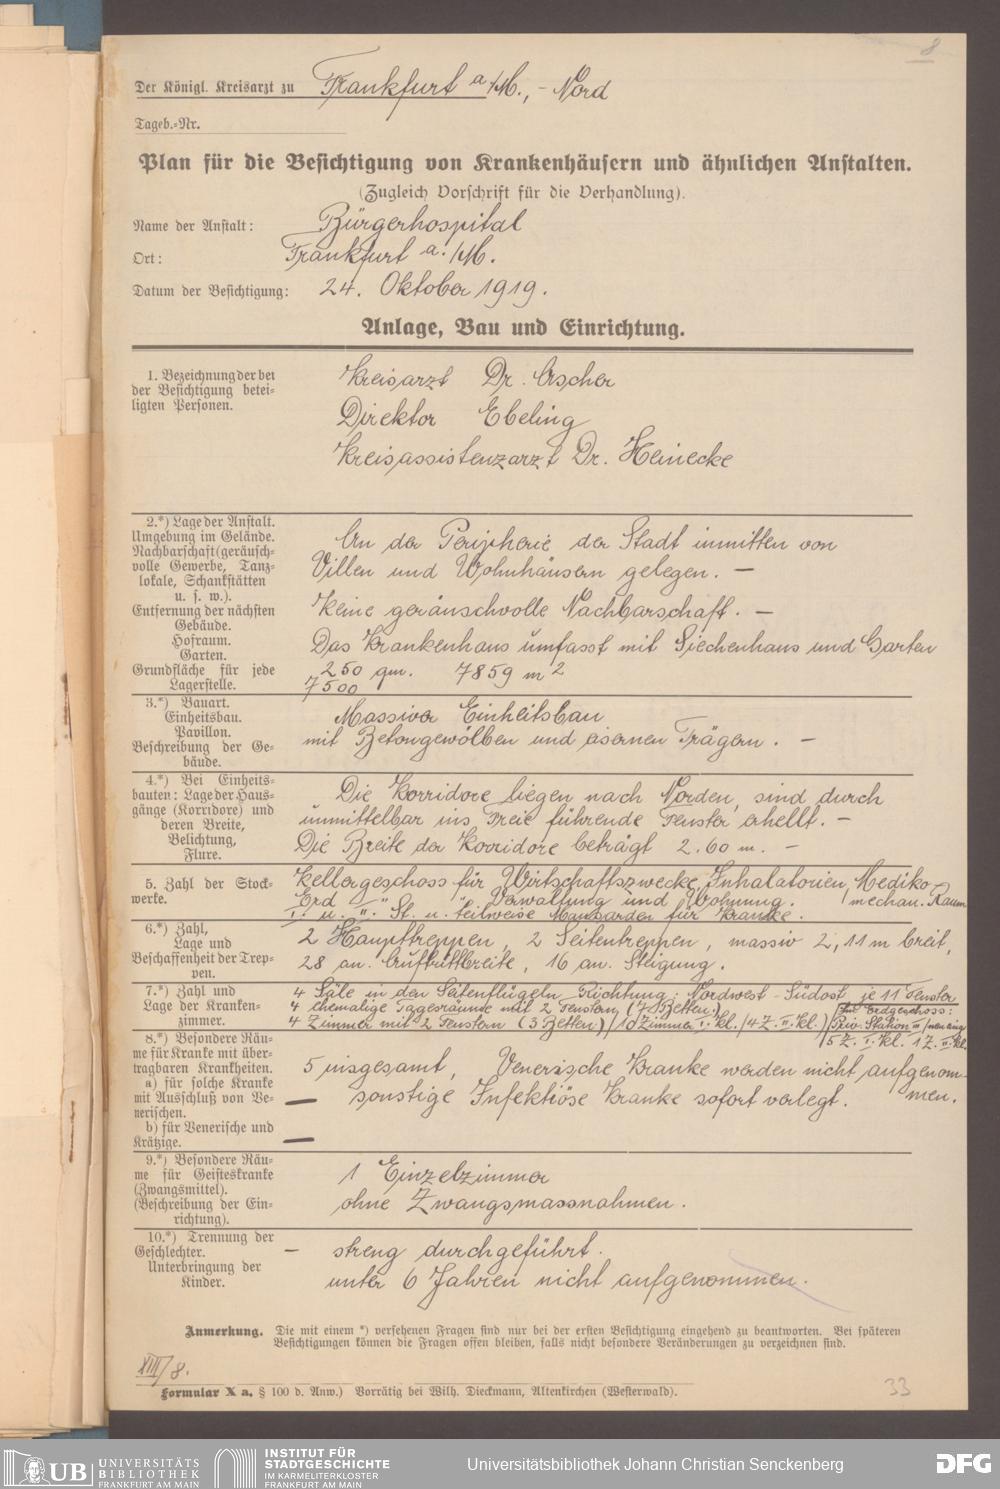 8
Der Königl. Kreisarzt zu Frankfurt a/M., - Nord
Tageb.-Nr.
Plan für die Besichtigung von Krankenhäusern und ähnlichen Anstalten.
(Zugleich Vorschrift für die Verhandlung).
Name der Anstalt: Bürgerhospital
Ort: Frankfurt a./M.
Datum der Besichtigung: 24. Oktober 1919.
Anlage, Bau und Einrichtung.
1. Bezeichnung der bei
der Besichtigung betei-
ligten Personen.
Kreisarzt Dr. Ascher
Direktor Ebeling
Kreisassistenzarzt Dr. Heinecke
2.*) Lage der Anstalt.
Umgebung im Gelände.
Nachbarschaft (geräusch-
volle Gewerbe, Tanz-
lokale, Schankstätten
u. s. w.).
Entfernung der nächsten
Gebäude.
Hofraum.
Garten.
Grundfläche für jede
Lagerstelle.
An der Peripherie der Stadt inmitten von
Villen und Wohnhäusern gelegen. —
Keine geräuschvolle Nachbarschaft. —
Das Krankenhaus umfasst mit Siechenhaus und Garten
250 qm. 7859 m2
7500
3.*) Bauart.
Einheitsbau.
Pavillon.
Beschreibung der Ge-
bäude.
Massiver Einheitsbau
mit Betongewölben und eisernen Trägern. —
4.*) Bei Einheits-
bauten: Lage der Haus-
gänge (Korridore) und
deren Breite,
Belichtung,
Flure.
Die Korridore liegen nach Norden, sind durch
unmittelbar ins Freie führende Fenster erhellt. —
Die Breite der Korridore beträgt 2.60 m. —
5. Zahl der Stock-
werke.
Kellergeschoss für Wirtschaftszwecke, Inhalatorien, Mediko
Erd " " Verwaltung und Wohnung. mechan. Raum
I. u. II. " St. u. teilweise Mansarden für Kranke.
6.*) Zahl,
Lage und
Beschaffenheit der Trep-
pen.
2 Haupttreppen, 2 Seitentreppen, massiv 2,11 m breit,
28 cm. Auftrittbreite, 16 cm. Steigung.
7.*) Zahl und
Lage der Kranken-
zimmer.
4 Säle in den Seitenflügeln Richtung: Nordwest - Südost je 11 Fenster
4 ehemalige Tagesräume mit 2 Fenstern (7 Betten)
4 Zimmer mit 2 Fenstern (3 Betten) / 10 Zimmer I. Kl. / 4 Z. II. Kl.
Im Erdgeschoss:
Priv. Station III
5 Z. I. Kl. 1 Z. II. Kl.
8.*) Besondere Räu-
me für Kranke mit über-
tragbaren Krankheiten.
a) für solche Kranke
mit Ausschluß von Ve-
nerischen.
b) für Venerische und
Krätzige.
5 insgesamt, Venerische Kranke werden nicht aufgenom-
men.
— sonstige Infektiöse Kranke sofort verlegt.
—
9.*) Besondere Räu-
me für Geisteskranke
(Zwangsmittel).
(Beschreibung der Ein-
richtung).
1 Einzelzimmer
ohne Zwangsmassnahmen.
10.*) Trennung der
Geschlechter.
Unterbringung der
Kinder.
— streng durchgeführt.
unter 6 Jahren nicht aufgenommen.
Anmerkung. Die mit einem *) versehenen Fragen sind nur bei der ersten Besichtigung eingehend zu beantworten. Bei späteren
Besichtigungen können die Fragen offen bleiben, falls nicht besondere Veränderungen zu verzeichnen sind.
XIII/8.
Formular X a. § 100 d. Anw.) Vorrätig bei Wilh. Dieckmann, Altenkirchen (Westerwald).
33
UB UNIVERSITÄTS
BIBLIOTHEK
FRANKFURT AM MAIN
INSTITUT FÜR
STADTGESCHICHTE
IM KARMELITERKLOSTER
FRANKFURT AM MAIN
Universitätsbibliothek Johann Christian Senckenberg
DFG